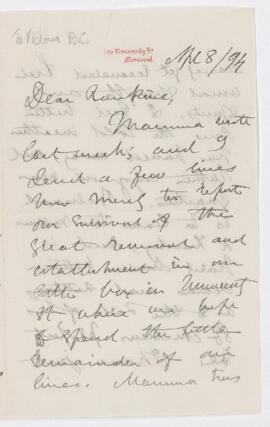 To Victoria B.C.
University St
Montreal.
Apl 8/94
Dear Rankine,
Mamma wrote
last week, and I
send a few lines
now merely to report
our survival of the
great removal and
establishment in our
little box in University
St where we hope
to spend the little
remainder of our
lives. Mamma has